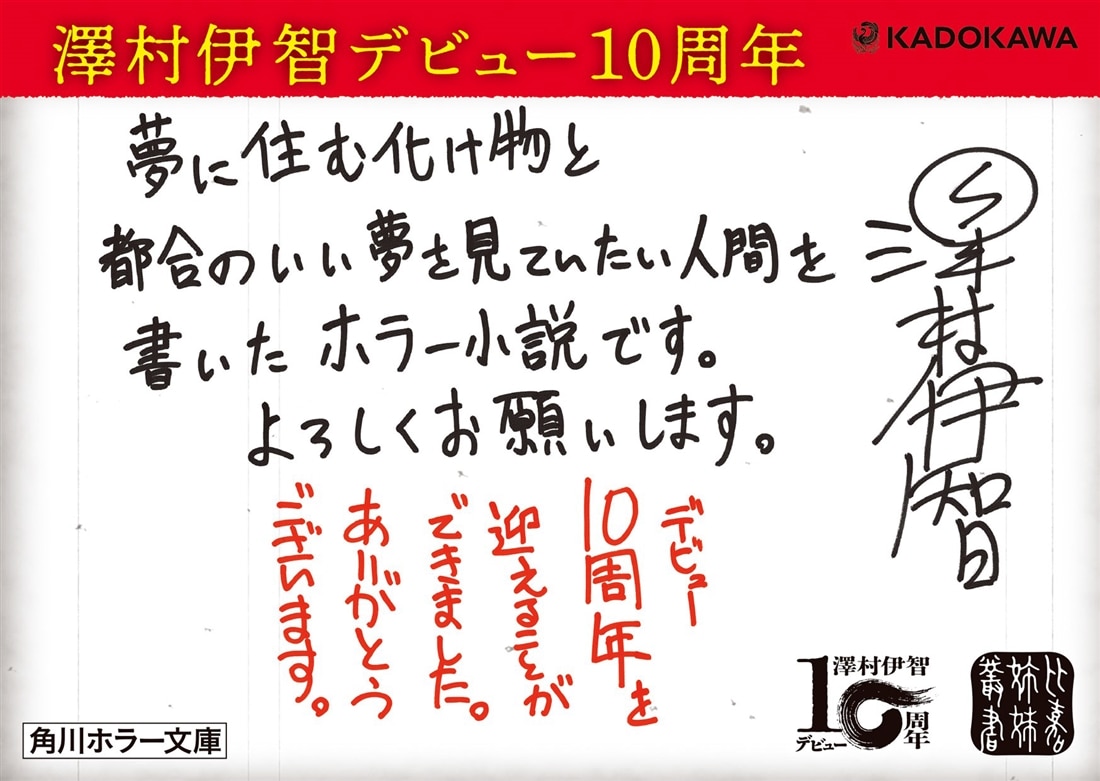 澤村伊智デビュー10周年
KADOKAWA
夢に住む化け物と
都合のいい夢を見ていたい人間を
書いた ホラー小説です。
よろしくお願いします。
澤村伊智
デビュー
10周年を
迎えることが
できました。
ありがとう
ございます。
角川ホラー文庫
澤村伊智
10周年
デビュー
比嘉
姉妹
叢書